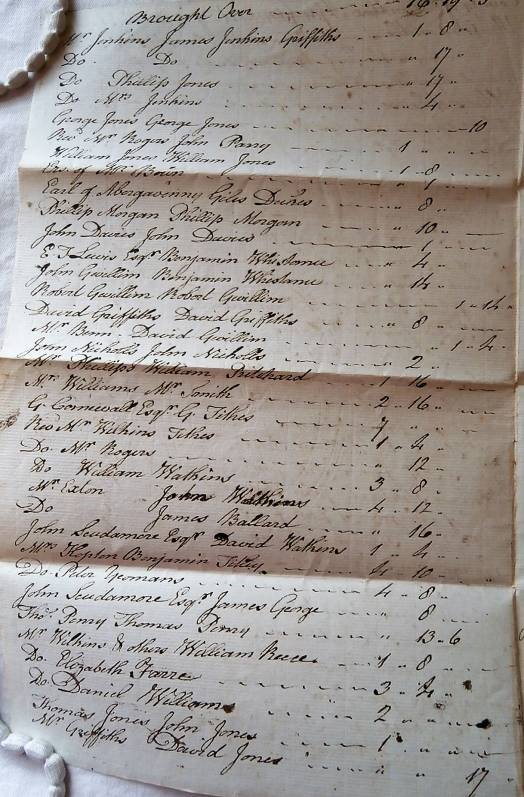 Brought Over 16 " 19 " 3
Mr Jenkins James Jenkins Griffiths 1 " 8 "
Do. Do 17 "
Do Phillip Jones 17 "
Do Mrs Jenkins 4 "
George Jones George Jones 10
Revd Mr Rogers John Parry 1 "
William Jones William Jones 1 - 8 "
of Mr 1 "
Earl of Abergavenny Giles 8 "
Phillip Morgan Phillip Morgan 10 "
John Davies John Davies 1 "
E T Lewis Esqr Benjamin Whistance 4 "
John Gwillim Benjamin Whistance 14 "
Robert Gwillim Robert Gwillim 1 " 14 "
David Griffiths David Griffiths " 8 "
Mr David Gwillim 1 " 4 "
John Nicholls John Nicholls " 2 "
Mr Phillips William Pritchard 1 " 16 "
Mr Williams Mr Smith 2 " 16 "
G Cornewall Esqr G Tithes 7 "
Revd Mr Watkins Tithes 1 " 4 "
Do. Mr Rogers " 12 "
Do William Watkins 3 " 8 "
Mr Exton John Watkins 4 " 12 "
Do James Ballard " 16 "
John Scudamore Esqr David Watkins 1 " 4 "
Mrs Hopton Benjamin 4 " 10 "
Do. Peter Yeomans 4 " 8 "
John Scudamore Esqr James George " 8 "
Thos. Penry Thomas Penry " 13 " 6
Mr Wilkins & others William Reece 1 " 8 "
Do. Elizabeth Farre 3 " 4 "
Do. Daniel Williams 2 "
Thomas Jones John Jones 1 "
Mr Griffiths David Jones " 17 "